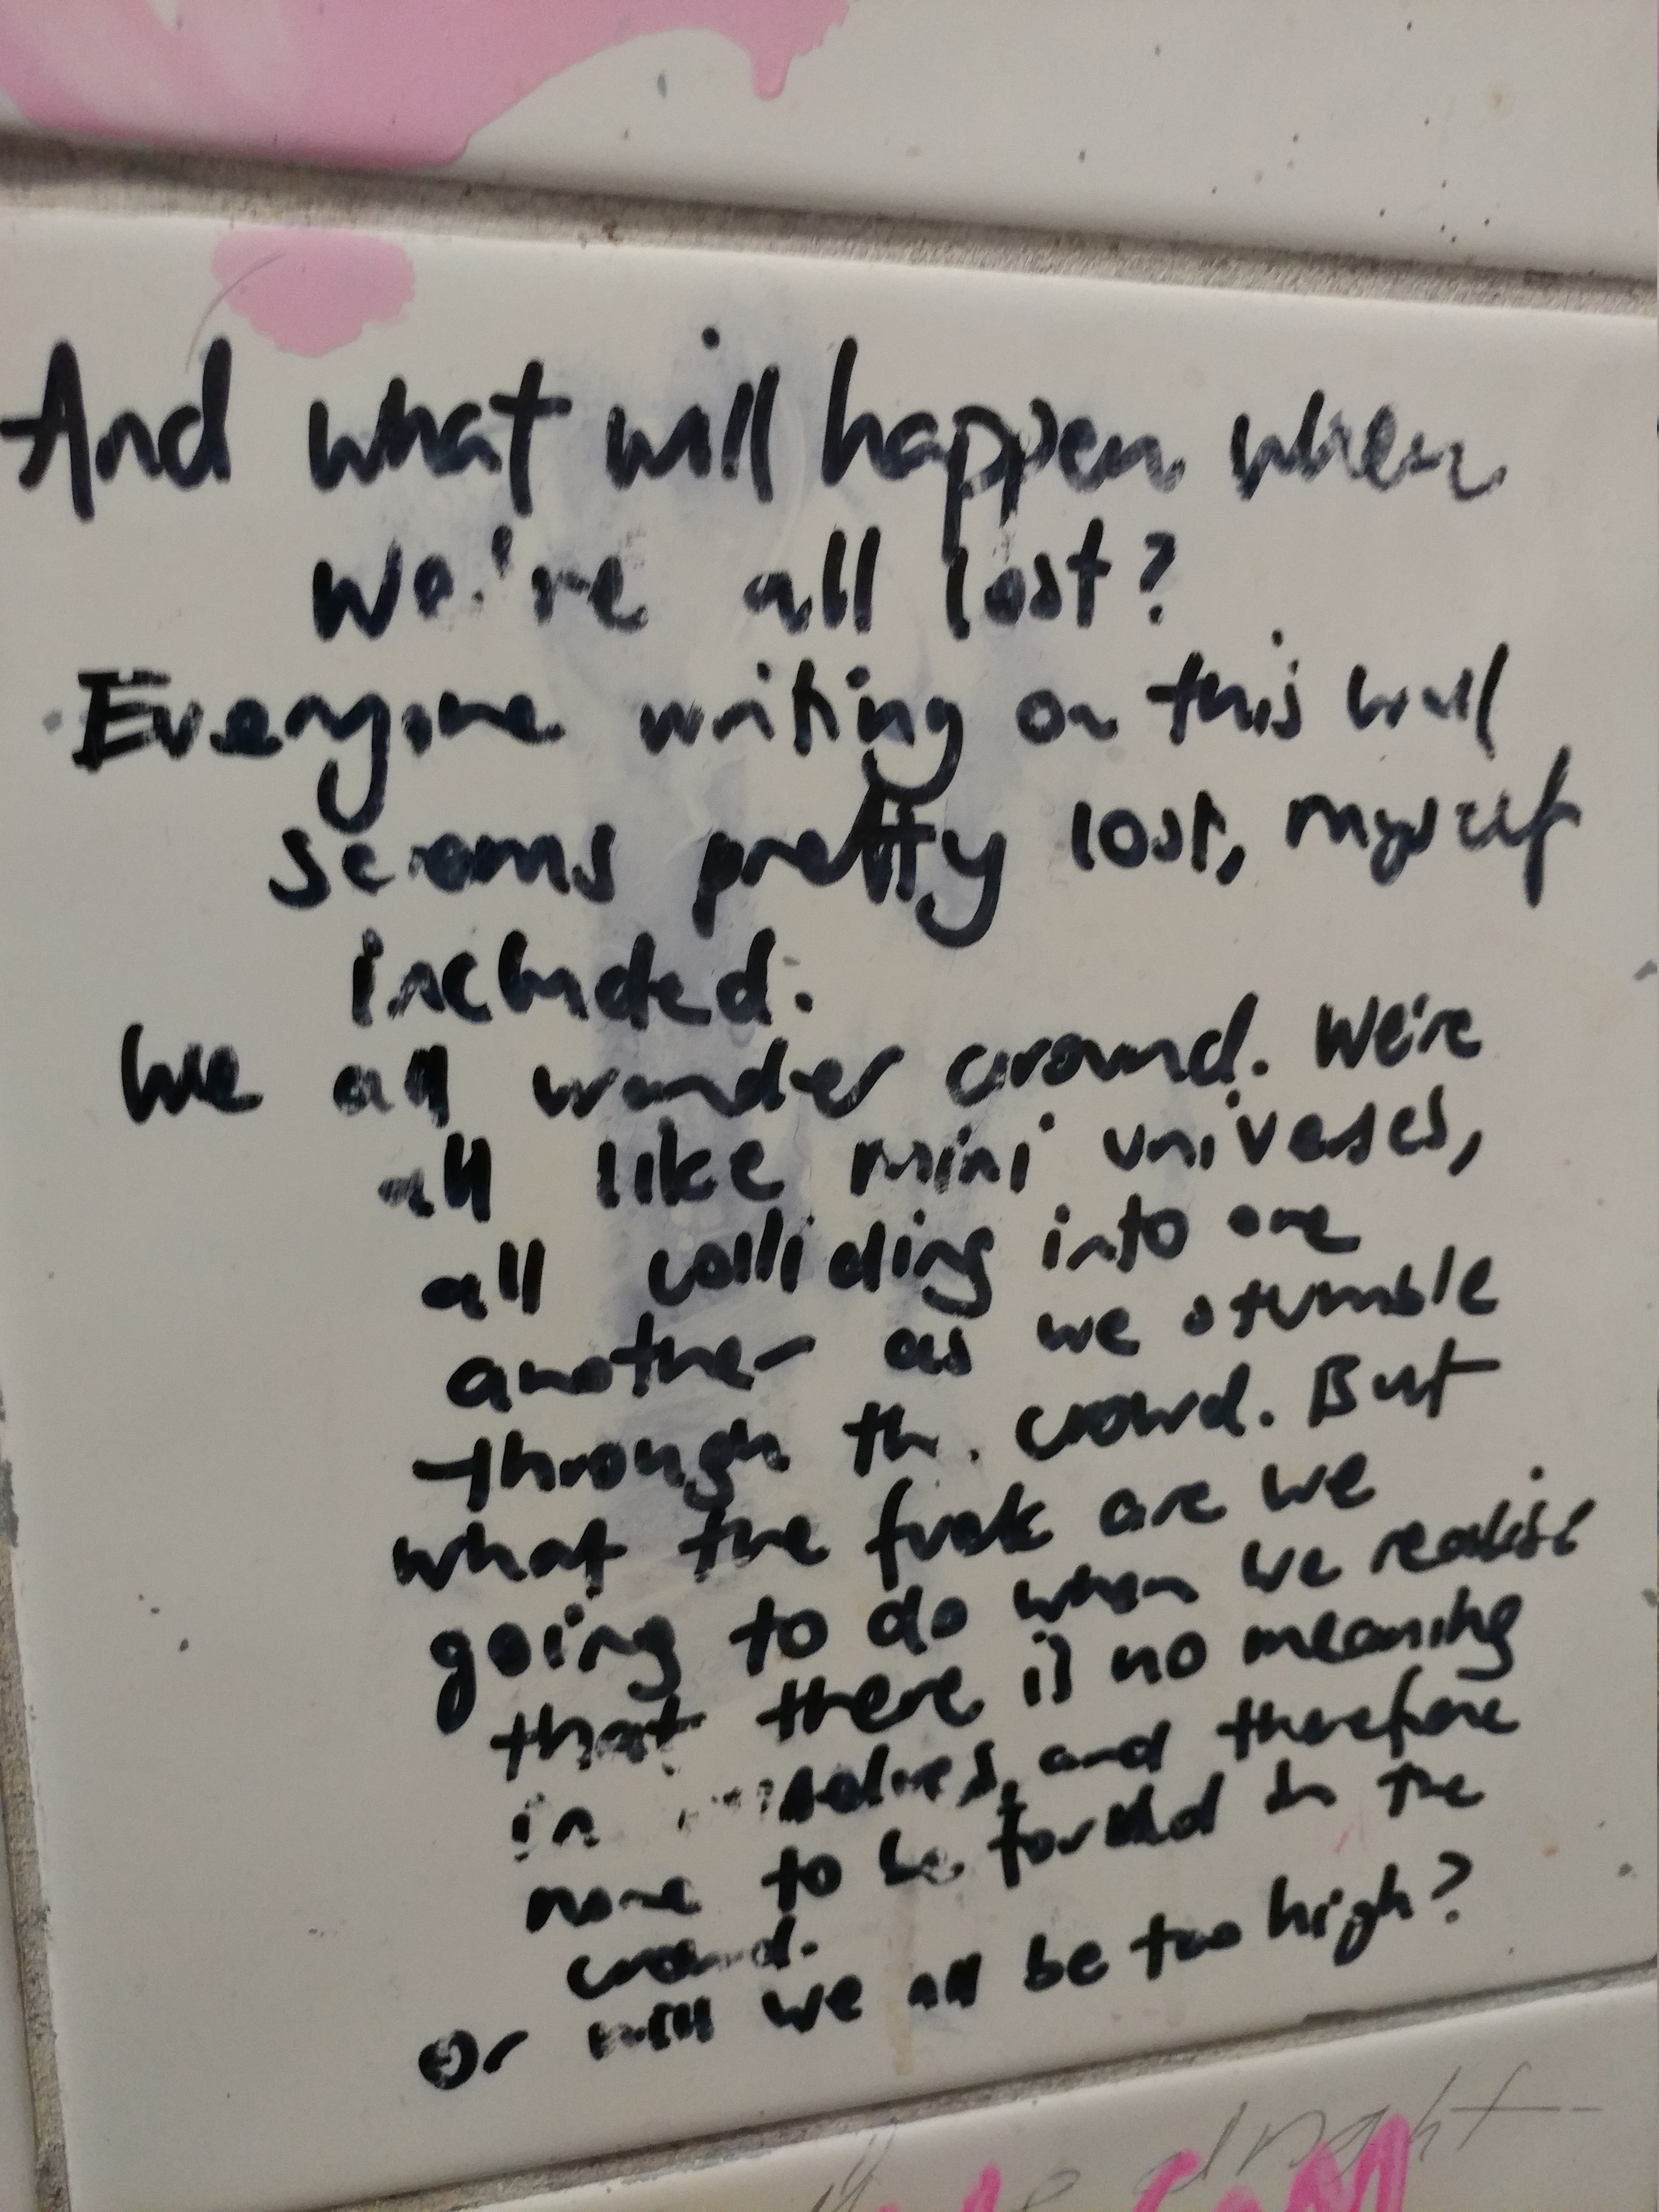 And what will happen when
we're all lost?
Everyone writing on this wall
seems pretty lost, myself
included.
We all wander around. We're
all like mini universes,
all colliding into one
another as we stumble
through th. crowd. But
what the fuck are we
going to do when we realise
that there is no meaning
in selves, and therefore
none to be found in the
crowd.
Or will we all be too high?